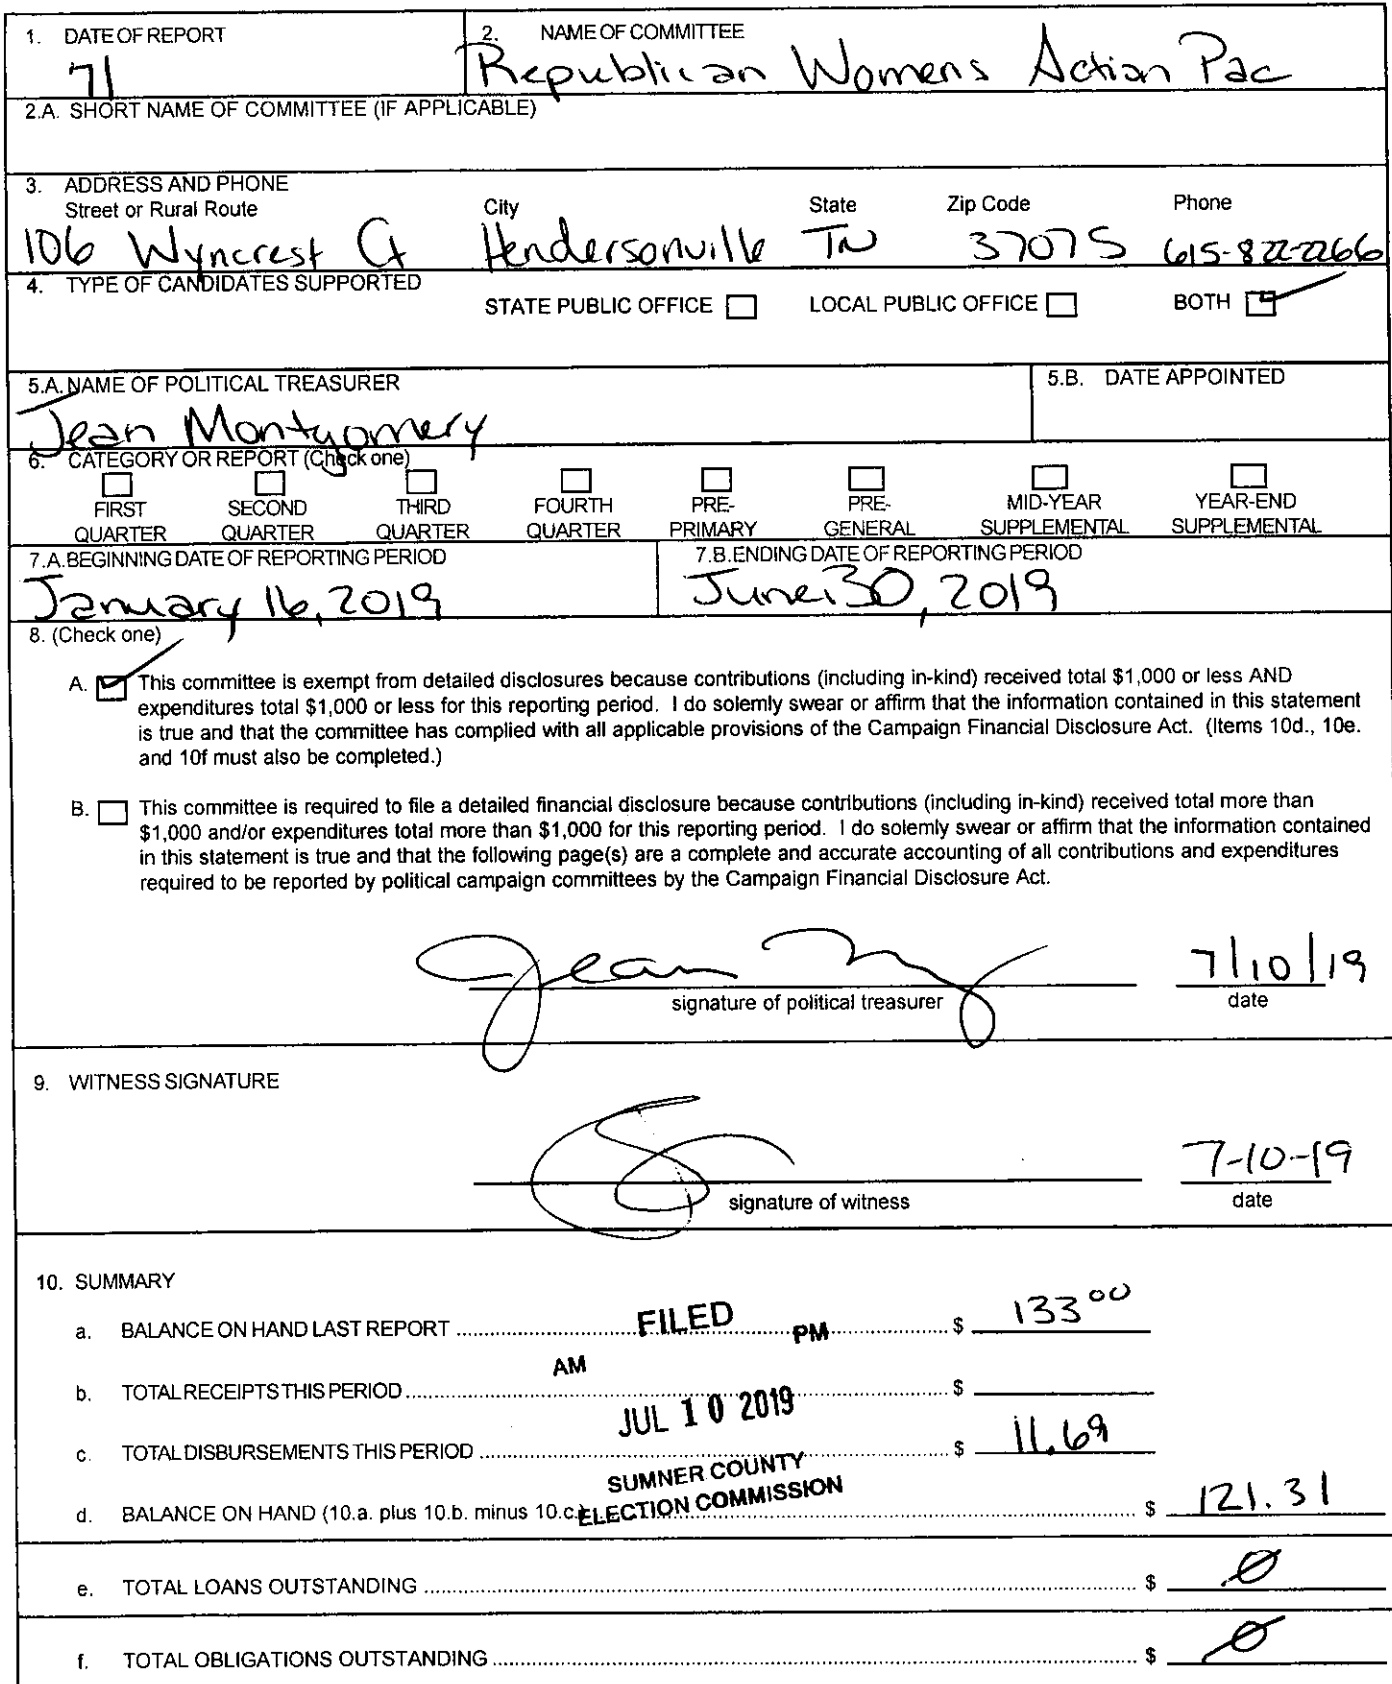 1. DATE OF REPORT
71
2. NAME OF COMMITTEE
Republican Womens Action Pac
2.A. SHORT NAME OF COMMITTEE (IF APPLICABLE)
3. ADDRESS AND PHONE
Street or Rural Route City State Zip Code Phone
106 Wyncrest Ct Hendersonville TN 37075 615-822-2266
4. TYPE OF CANDIDATES SUPPORTED
STATE PUBLIC OFFICE LOCAL PUBLIC OFFICE BOTH
5.A. NAME OF POLITICAL TREASURER
Jean Montgomery
5.B. DATE APPOINTED
6. CATEGORY OR REPORT (Check one)
FIRST SECOND THIRD FOURTH PRE- PRE- MID-YEAR YEAR-END
QUARTER QUARTER QUARTER QUARTER PRIMARY GENERAL SUPPLEMENTAL SUPPLEMENTAL
7.A. BEGINNING DATE OF REPORTING PERIOD
January 16, 2019
7.B. ENDING DATE OF REPORTING PERIOD
June 30, 2019
8. (Check one)
A. This committee is exempt from detailed disclosures because contributions (including in-kind) received total $1,000 or less AND
expenditures total $1,000 or less for this reporting period. I do solemly swear or affirm that the information contained in this statement
is true and that the committee has complied with all applicable provisions of the Campaign Financial Disclosure Act. (Items 10d., 10e.
and 10f must also be completed.)
B. This committee is required to file a detailed financial disclosure because contributions (including in-kind) received total more than
$1,000 and/or expenditures total more than $1,000 for this reporting period. I do solemly swear or affirm that the information contained
in this statement is true and that the following page(s) are a complete and accurate accounting of all contributions and expenditures
required to be reported by political campaign committees by the Campaign Financial Disclosure Act.
Jean 7/10/19
signature of political treasurer date
9. WITNESS SIGNATURE
7-10-19
signature of witness date
10. SUMMARY
a. BALANCE ON HAND LAST REPORT $ 133 00
FILED
AM PM
b. TOTAL RECEIPTS THIS PERIOD $
JUL 10 2019
c. TOTAL DISBURSEMENTS THIS PERIOD $ 11.69
SUMNER COUNTY
ELECTION COMMISSION
d. BALANCE ON HAND (10.a. plus 10.b. minus 10.c.) $ 121.31
e. TOTAL LOANS OUTSTANDING $ 0
f. TOTAL OBLIGATIONS OUTSTANDING $ 0